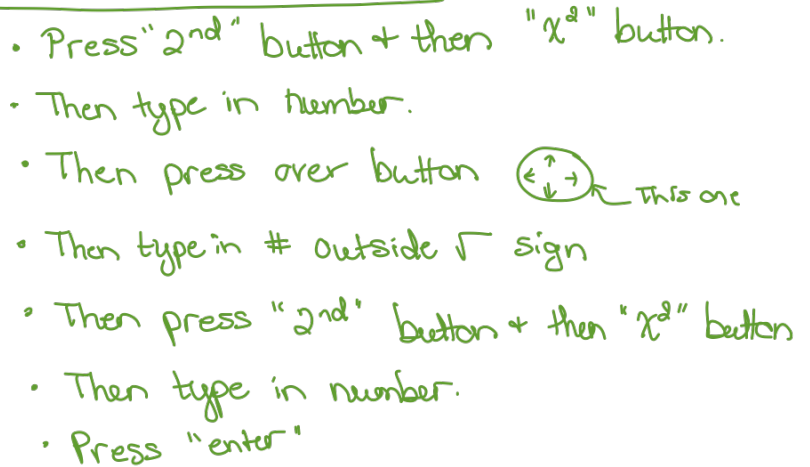 • Press "2nd" button + then "x²" button.
• Then type in number.
• Then press over button
This one
• Then type in # outside √ sign
• Then press "2nd" button + then "x²" button
• Then type in number.
• Press "enter"